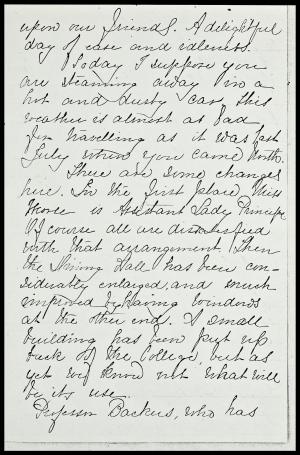 upon our friends. A delightful
day of ease and idleness.
Today I suppose you
are steaming away in a
hot and dusty car, this
weather is almost as bad
for travelling as it was last
July when you came North.
There are some changes
here. In the first place Miss
Morse is Assistant Lady Principal
Of course all are dissatisfied
with that arrangement. Then
the Dining Hall has been con-
siderably enlarged, and much
improved by having windows
at the other end. A small
building has been put up
back of the College, but as
yet we know not what will
be its use.
Professor Backus, who has